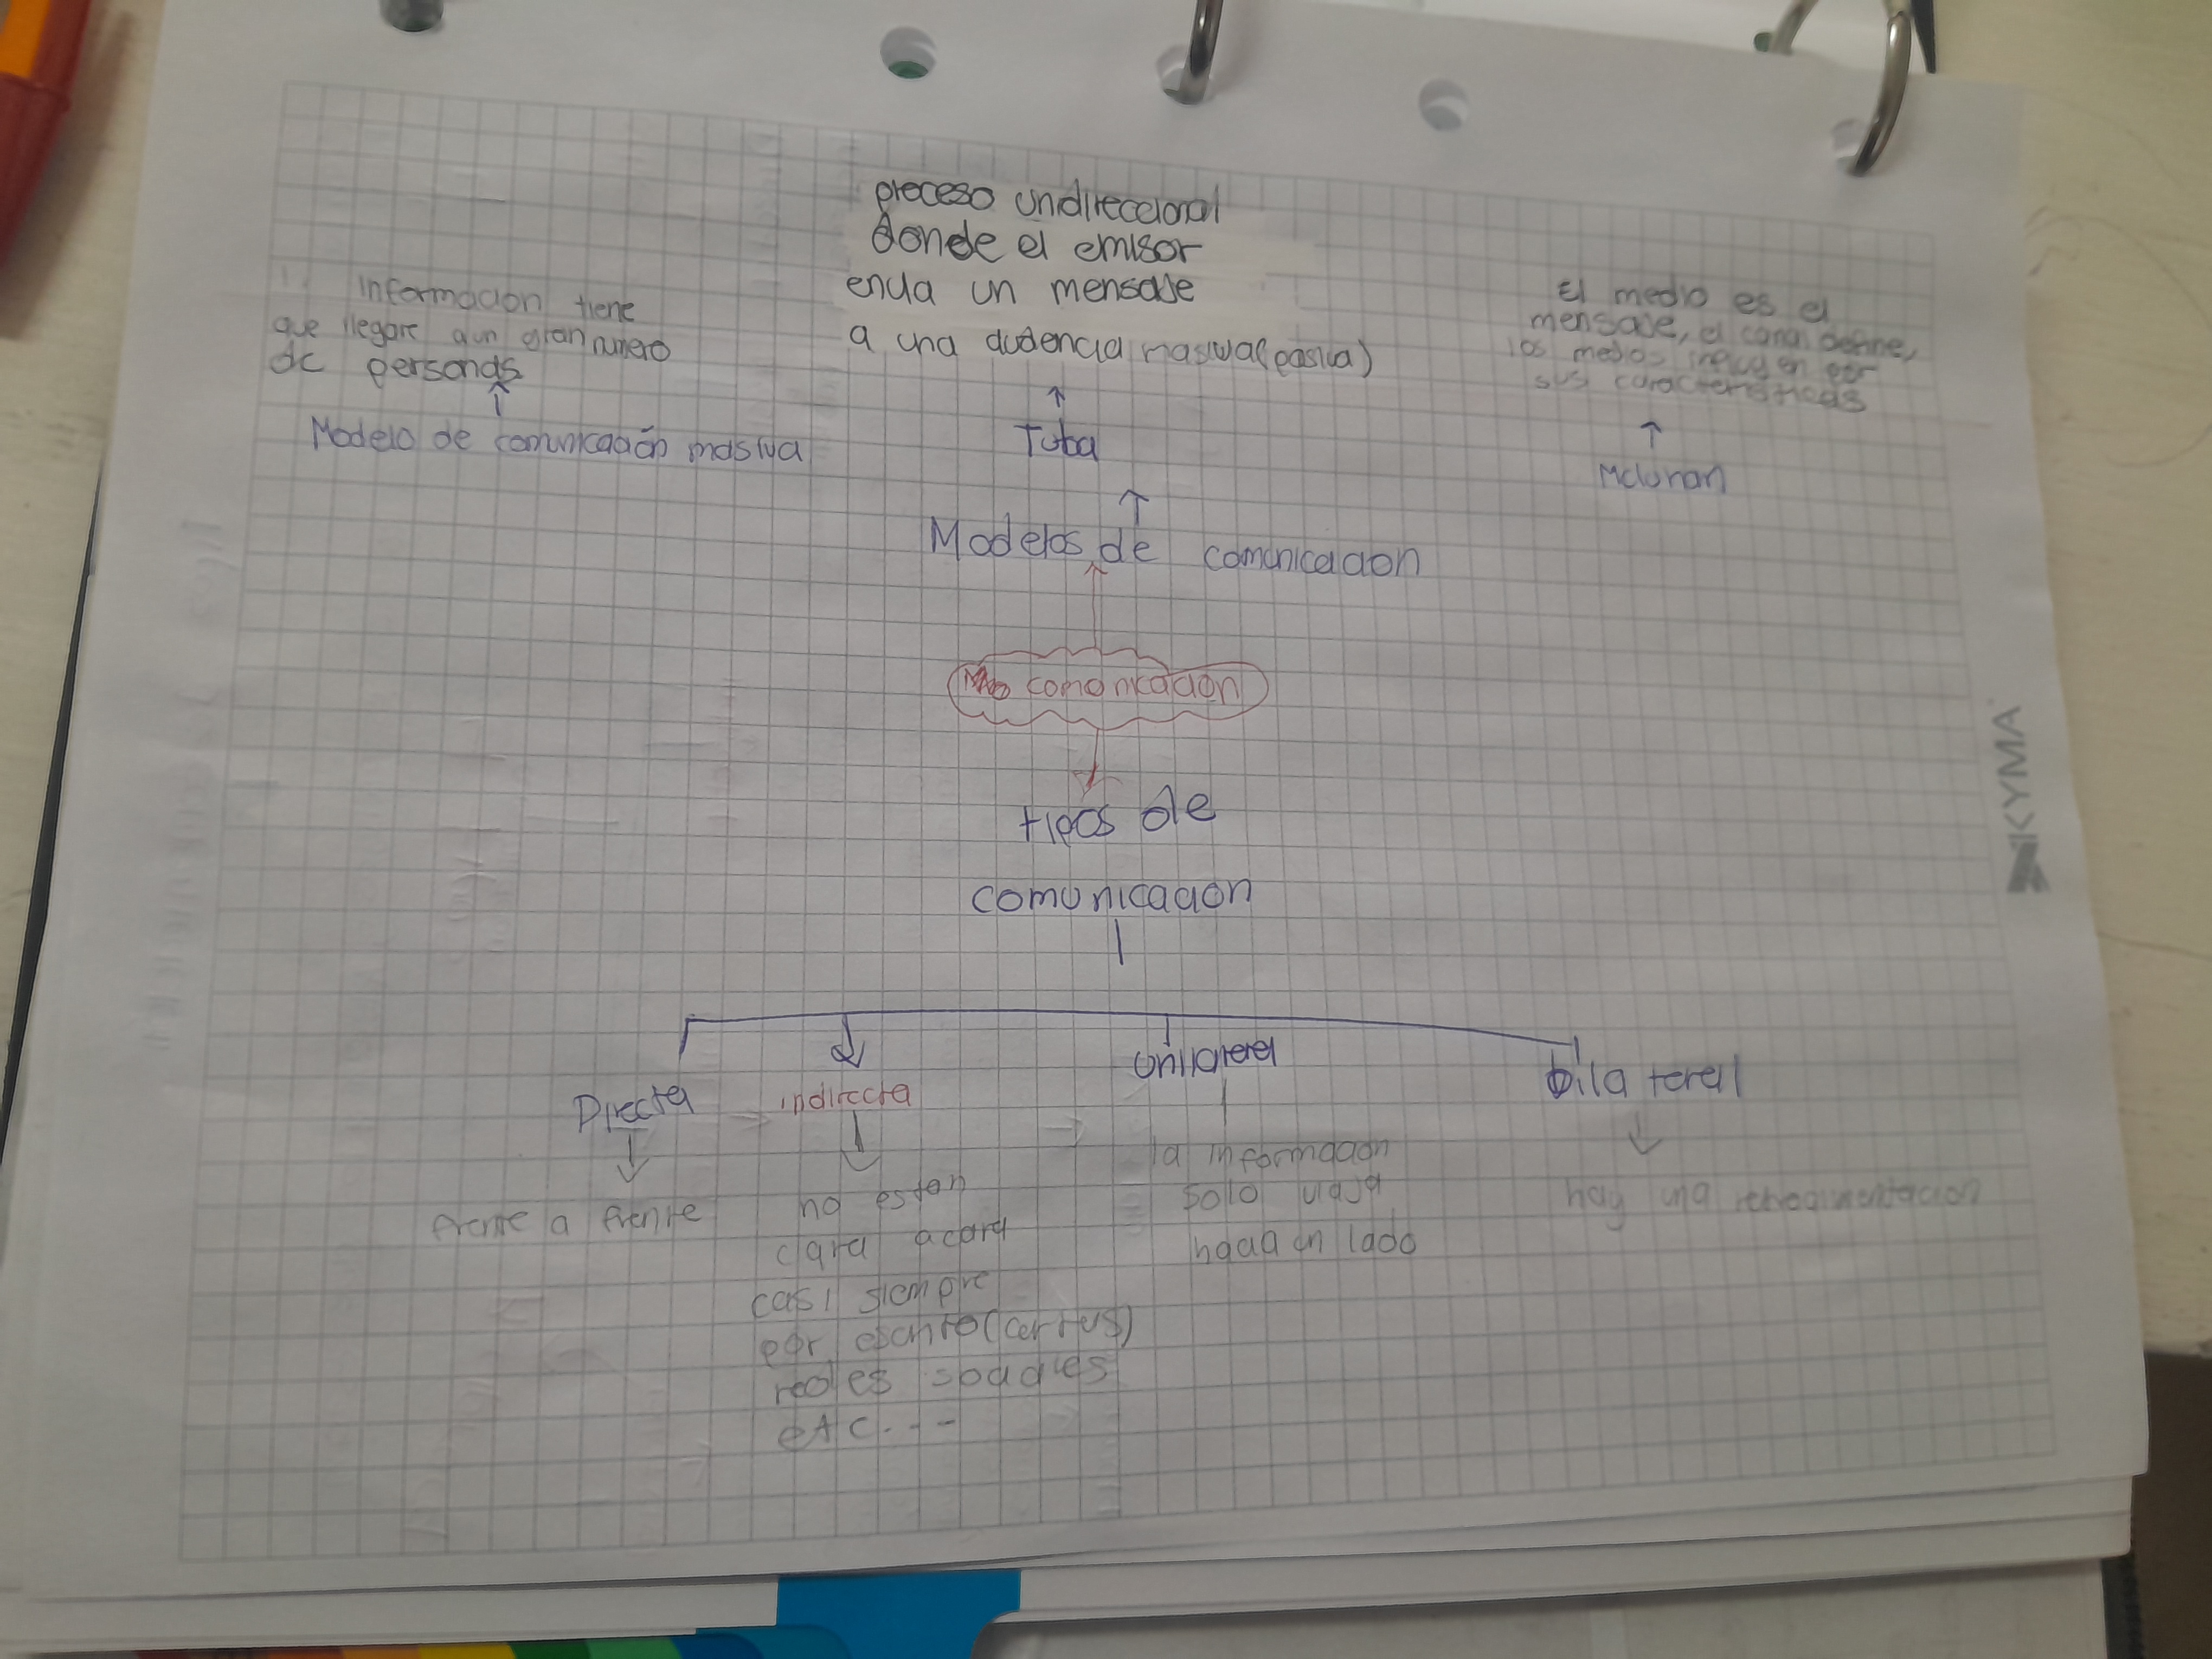 preceso unidireccional
donde el emisor
envia un mensaje
a una audencia masiva(pasiva)
Informacion tiene
que llegare a un gran numero
de personas
El medio es el
mensaje, el canal define,
los medios influyen por
sus características
Modelo de comunicación masiva
Tuba
Mcluhan
Modelos de comunicacion
comonicacion
tipos de
comunicacion
Directa
indirecta
Unilateral
bilateral
frente a frente
no estan
cara a cara
casi siempre
por escrito (cartas)
redes sociales
etc...
la informacion
solo viaja
hacia un lado
hay una
KYMA